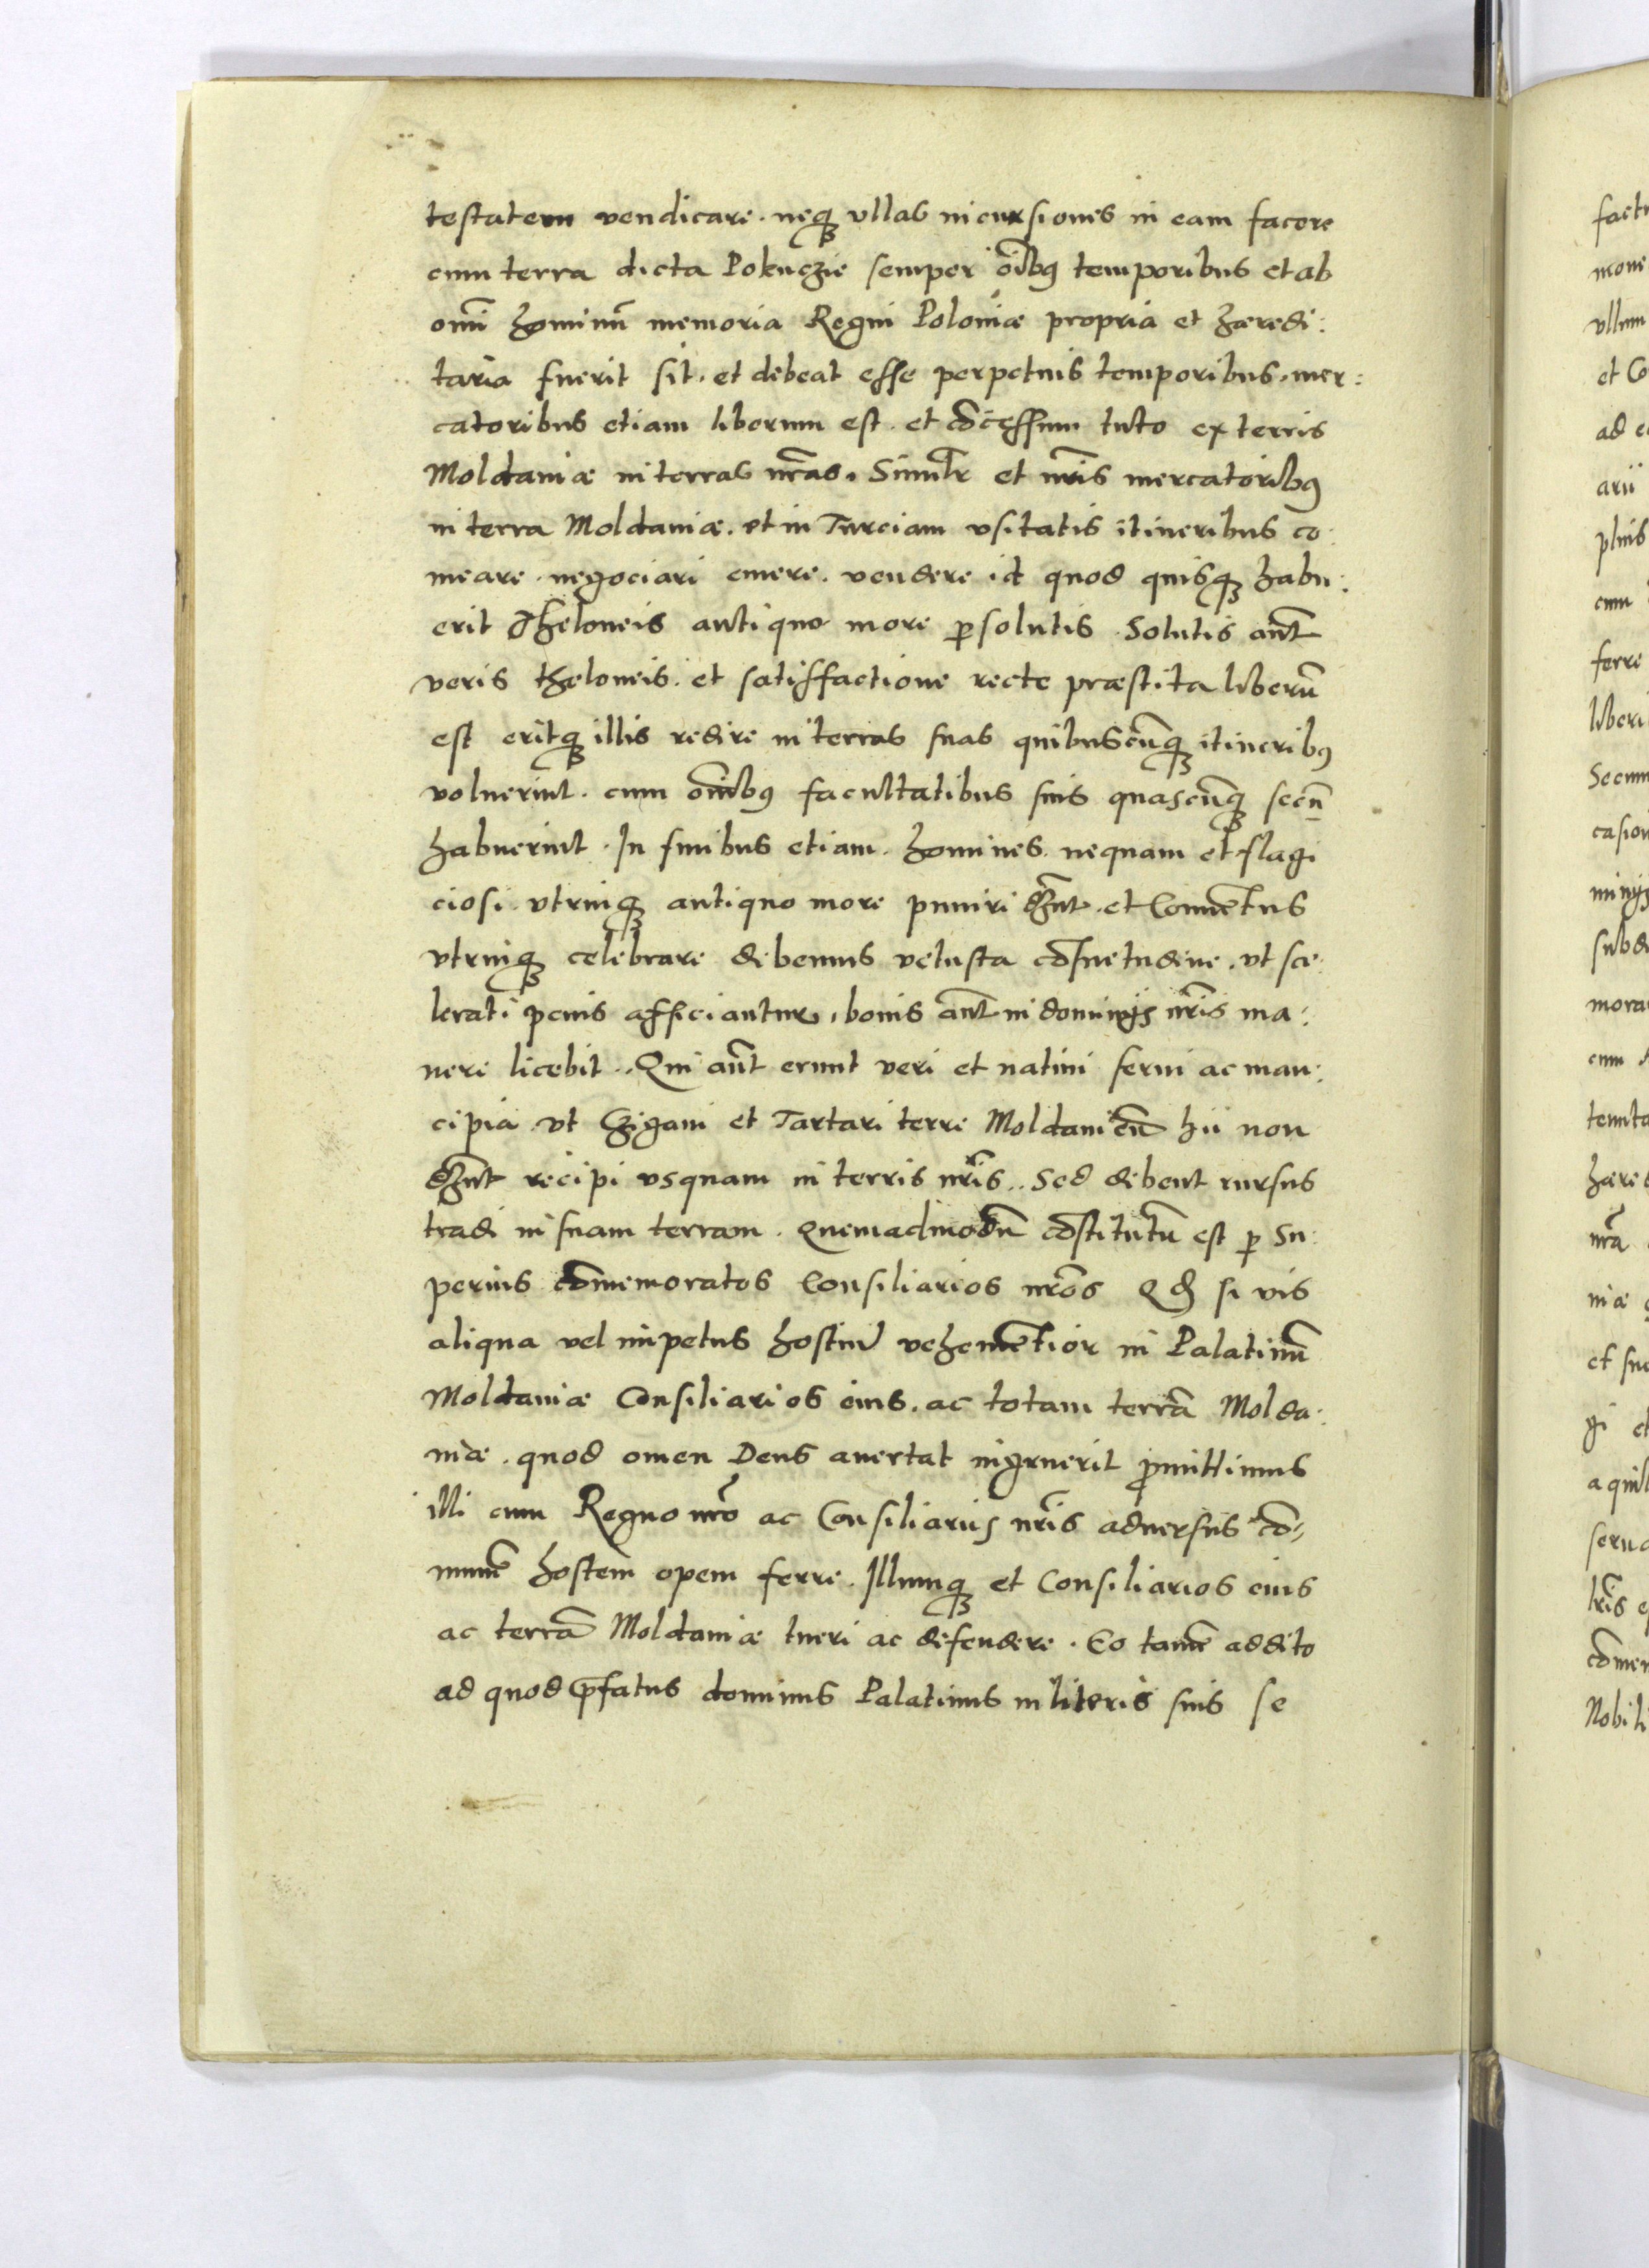 testatem vendicare. neqꝫ vllas incursiones in eam facere
cum terra dicta Pokuczie semper oĩbꝯ temporibus et ab
omĩ hominũ memoria Regni Poloniæ propria et hæredi:
taria fuerit sit. et debeat esse perpetuis temporibus. mer:
catoribus etiam liberum est. et cõcessum tuto ex terris
Moldauiæ in terras nr̃as. Simil̃r et nr̃is mercatoribꝯ
in terra Moldauiæ. et in Turciam vsitatis itineribus co:
meare. negociari emere. vendere id quod quisqꝫ habu:
erit Theloneis antiquo more ꝑsolutis. Solutis aũt
veris theloneis. et satisfactione recte præstita liberũ
est eritqꝫ illis redire in terras suas quibuscũqꝫ itineribꝯ
voluerint. cum om̃ibꝯ facultatibus suis quascũqꝫ secũ
habuerint. In finibus etiam. homines. nequam et flagi
ciosi. vtrinqꝫ antiquo more puniri dñt. et Conuẽtus
vtrinqꝫ celebrare debemus vetusta cõsuetudine. vt sce:
lerati penis afficiantur, bonis aũt in dominijs nr̃is ma:
nere licebit.. Qui aũt erunt veri et natiui serui ac man:
cipia. vt Czigani et Tartari terre Moldauieñ hii non
dñt recipi vsquam in terris nr̃is.. Sed debent rursus
tradi in suam terram. Quemadmodũ cõstitutũ est ꝑ Su:
perius cõmemoratos Consiliarios nr̃os Qđ si vis
aliqua vel impetus hostiũ vehemẽtior in Palatinũ
Moldauiæ Consiliarios eius. ac totam terrã Molda:
uiæ. quod omen Deus auertat ingruerit ꝓmittimus
illi cum Regno nr̃o ac Consiliariis nr̃is aduersus cõ,
munẽ hostem opem ferre. Illumqꝫ et Consiliarios eius
ac terrã Moldauiæ tueri ac defendere. Eo tamẽ addito
ad quod p̃fatus dominus Palatinus in literis suis se